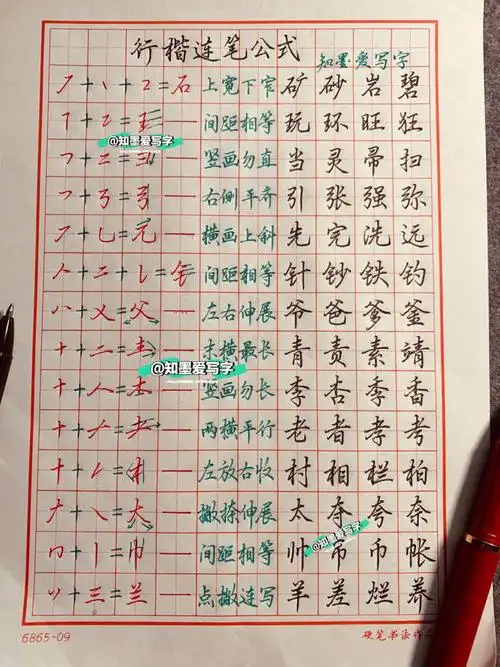 行楷连笔公式 知墨爱写字
石 上宽下窄 矿 砂 岩 碧
间距相等 玩 环 旺 狂
@知墨爱写字
竖画勿直 当 灵 帚 扫
弓 右侧平齐 引 张 强 弥
横画上斜 先 完 洗 远
间距相等 针 钞 铁 钓
父 左右伸展 爷 爸 爹 釜
末横最长 青 责 素 靖
@知墨爱写字
竖画勿长 李 杏 季 香
两横平行 老 者 孝 考
左放右收 村 相 栏 柏
大 撇捺伸展 太 夺 夸 奈
@知墨爱写字
巾 间距相等 帅 帘 币 帐
兰 点撇连写 羊 差 烂 养
6865-09 硬笔书法作品